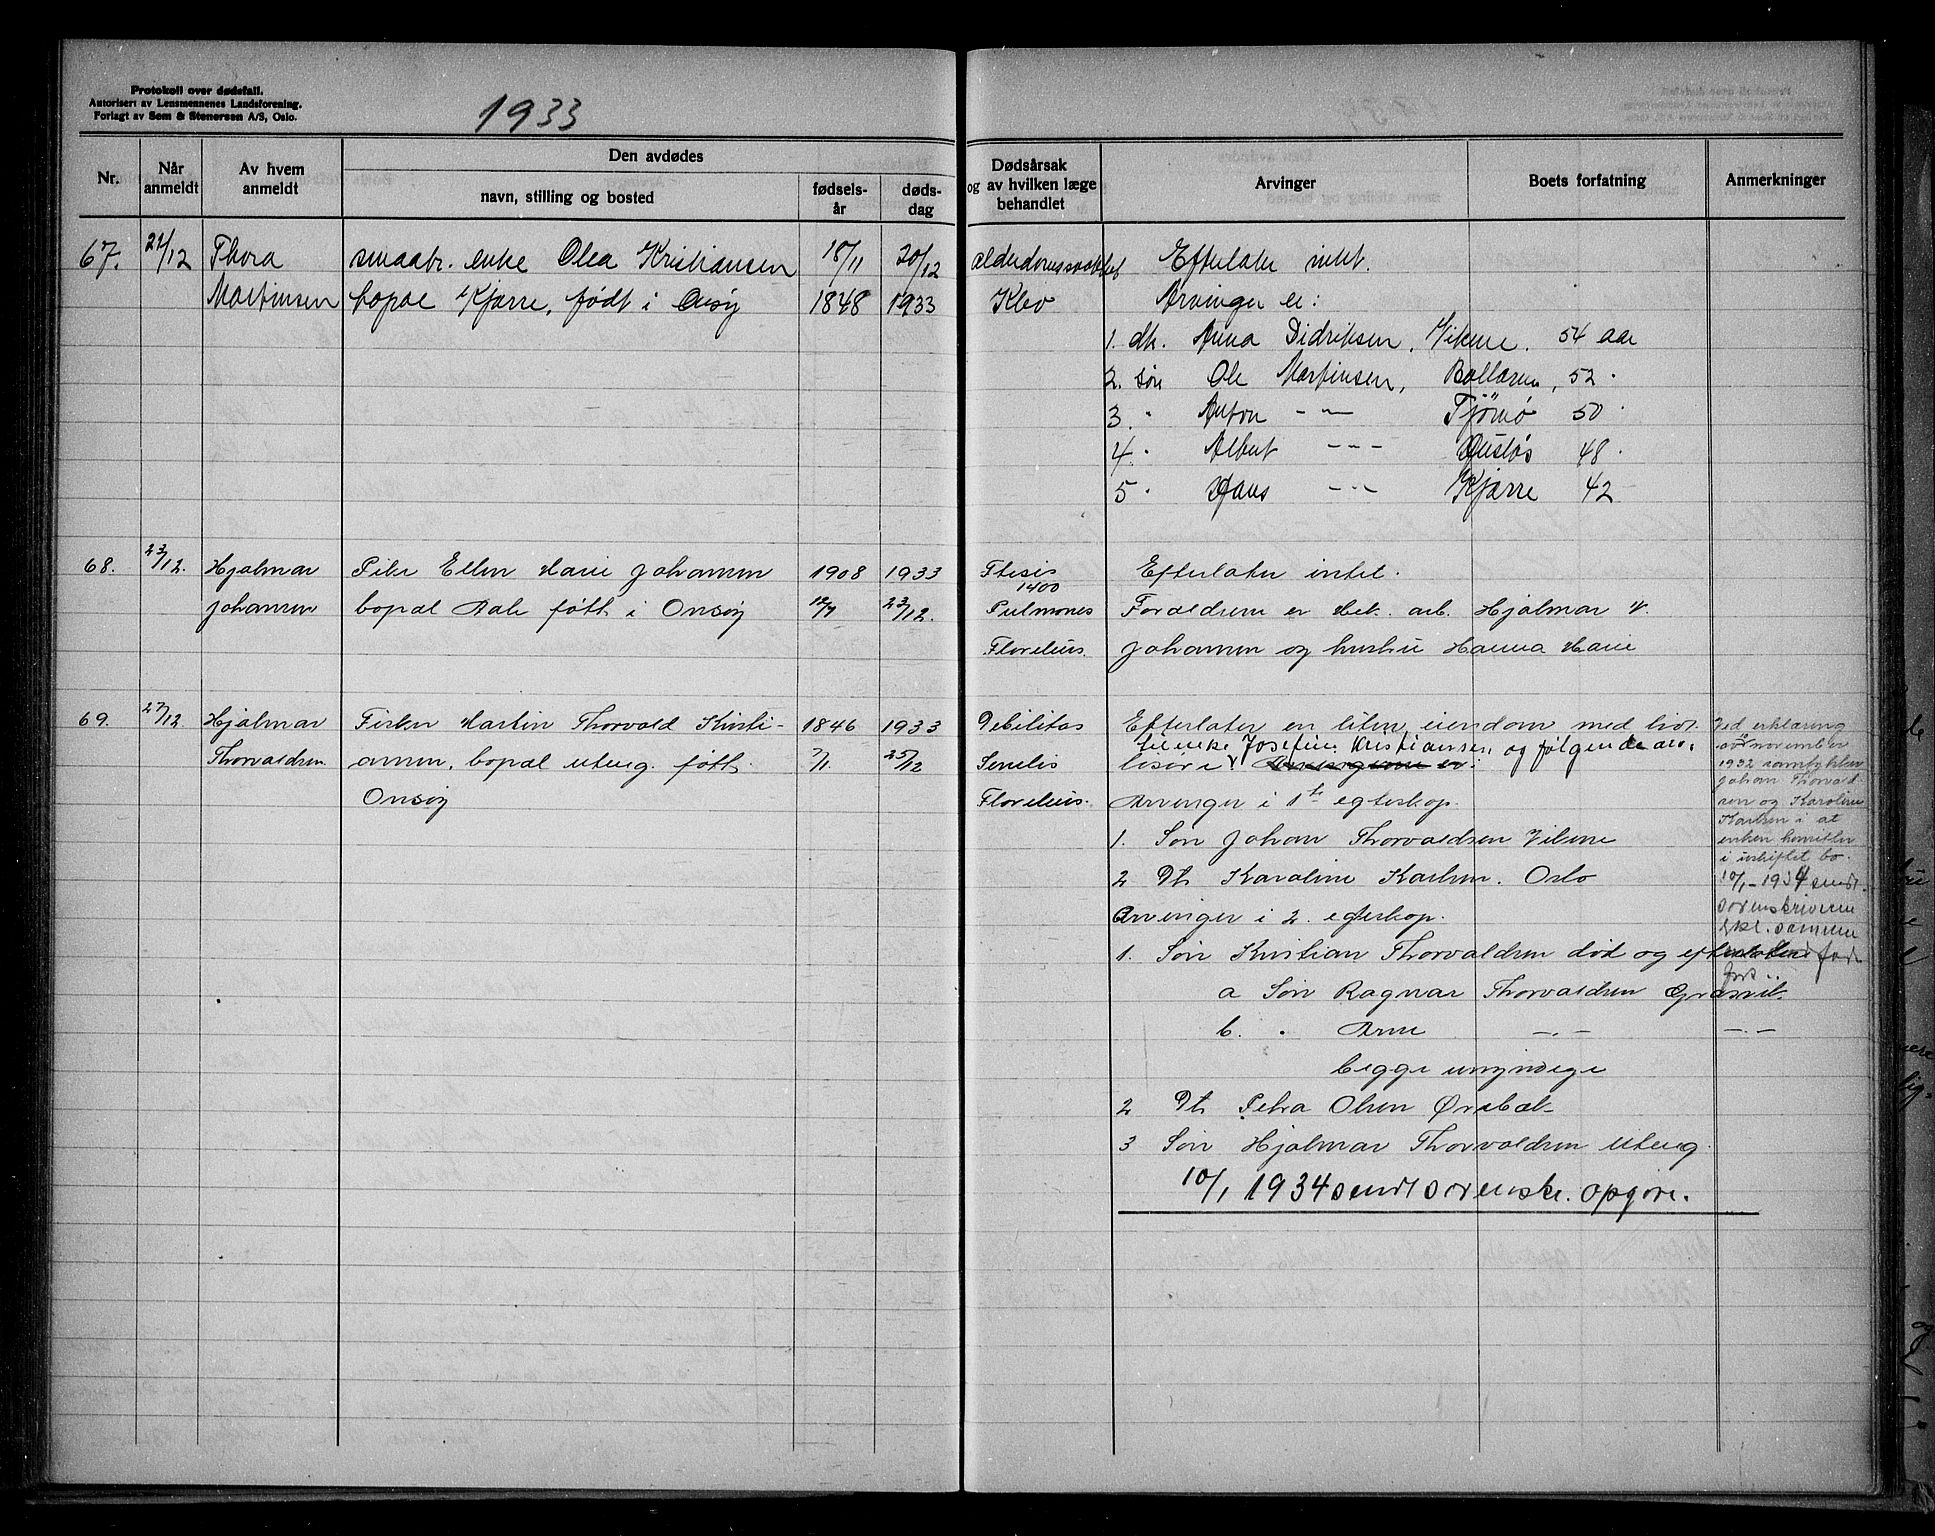 Protokoll over dødsfall.
Autorisert av Lensmennenes Landsforening.
Forlagt av Sem & Stenersen A/S, Oslo.
1933
Nr.
Når anmeldt
Av hvem anmeldt
Den avdødes
navn, stilling og bosted
fødsels-år
døds-dag
Dødsårsak og av hvilken læge behandlet
Arvinger
Boets forfatning
Anmerkninger
67. 21/12 Thora smaabr. enke Olea Kristiansen 18/11 20/12 Efterlater intet.
Martinsen bopæl Kjærre, født i Onsøy 1848 1933 Klev Arvinger er:
1. dt. Anna Didriksen, Vikene. 54 aar
2. søn Ole Martinsen, Bollæren, 52 "
3. " Anton -"- Tjømø 50 "
4. " Albert -"- 48 "
5 " Hans -"- Kjærre 42
68. 23/12. Hjalmar Pike Ellen Marie Johansen 1908 1933 Ftesis Efterlater intet.
1400
Johansen bopæl Aale født i Onsøy 12/7 23/12. Pulmones Forældrene er arb. Hjalmar
Florelius. Johansen og hustru Hanna Marie
69. 27/12. Hjalmar Fisker Martin Thorvald Kristi- 1846 1933 Debilitas Efterlater en liten eiendom med
til enke Josefine Kristiansen og følgende
Thorvaldsen ansen, bopæl uteng. født 7/1. 25/12 Senilis løsøre Arvingerne er:
Onsøy Florelius. Arvinger i 1ste egteskap.
1. Søn Johan Thorvaldsen Vikene
2 Dt Karoline Karlsen. Oslo
Arvinger i 2. egteskap.
1. Søn Kristian Thorvaldsen død og efterlater
a Søn Ragnar Thorvaldsen Græsvik.
b. " Arne -"- -"-
begge umyndige
2 Dt Petra Olsen Ørebæk
3 Søn Hjalmar Thorvaldsen uteng.
10/1 1934 sendt sorenskr. opgave.
Ved erklæring
av november
1932 samtykker
Johan Thorvald-
sen og Karoline
Karlsen i at
enken hensitter
i uskiftet bo.
10/1-1934 sendt
sorenskriveren